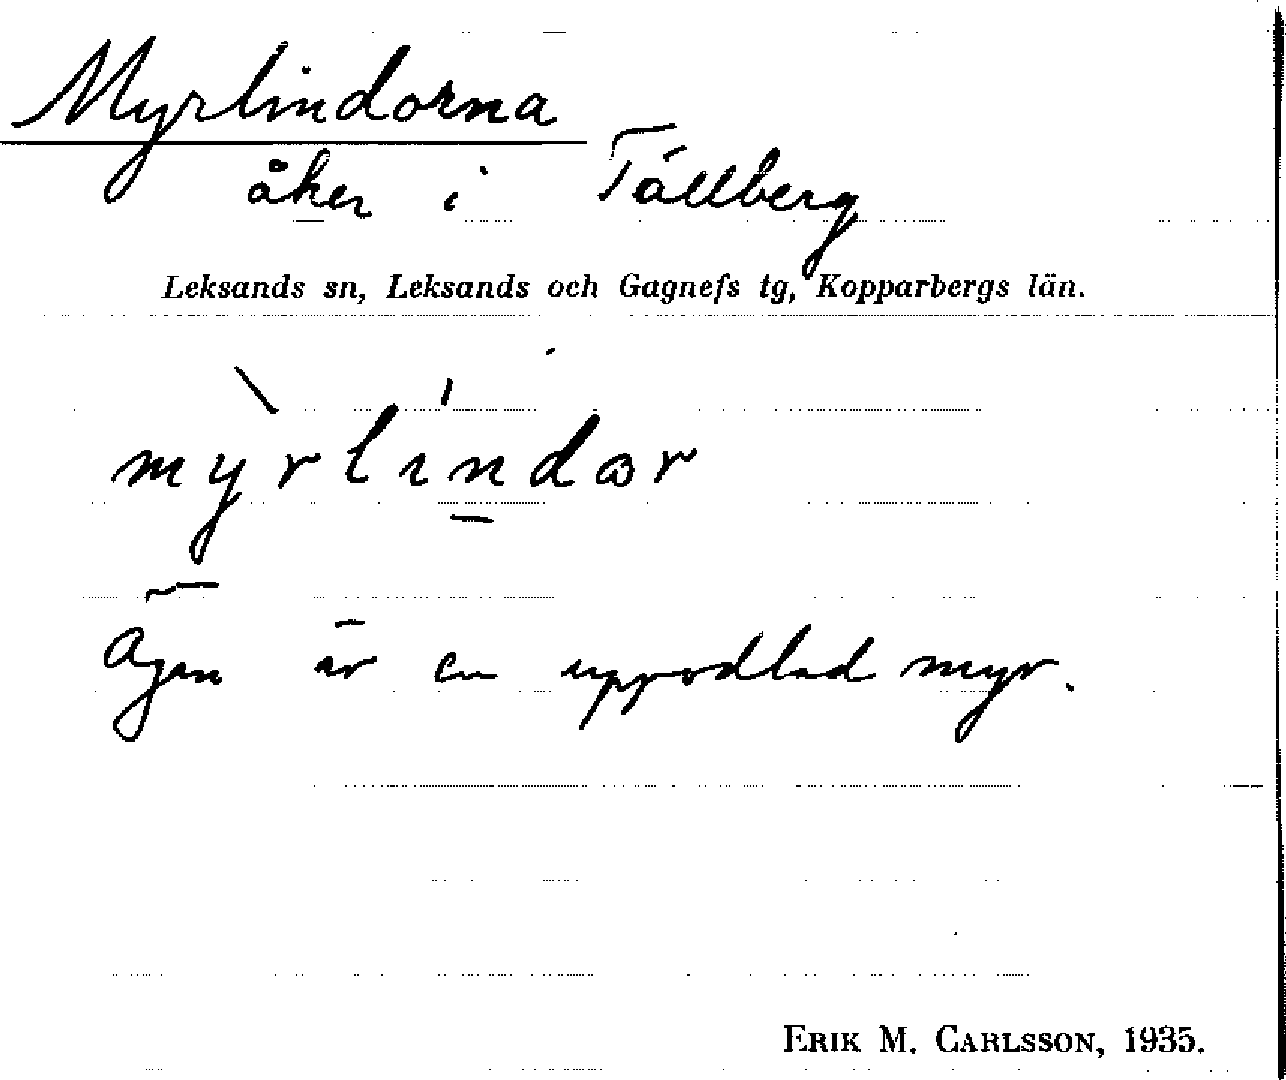 Myrlindorna
åker i Tällberg
Leksands sn, Leksands och Gagnefs tg, Kopparbergs län.
mỳrlíndor
är en uppodlad myr.
ERIK M. CARLSSON, 1935.